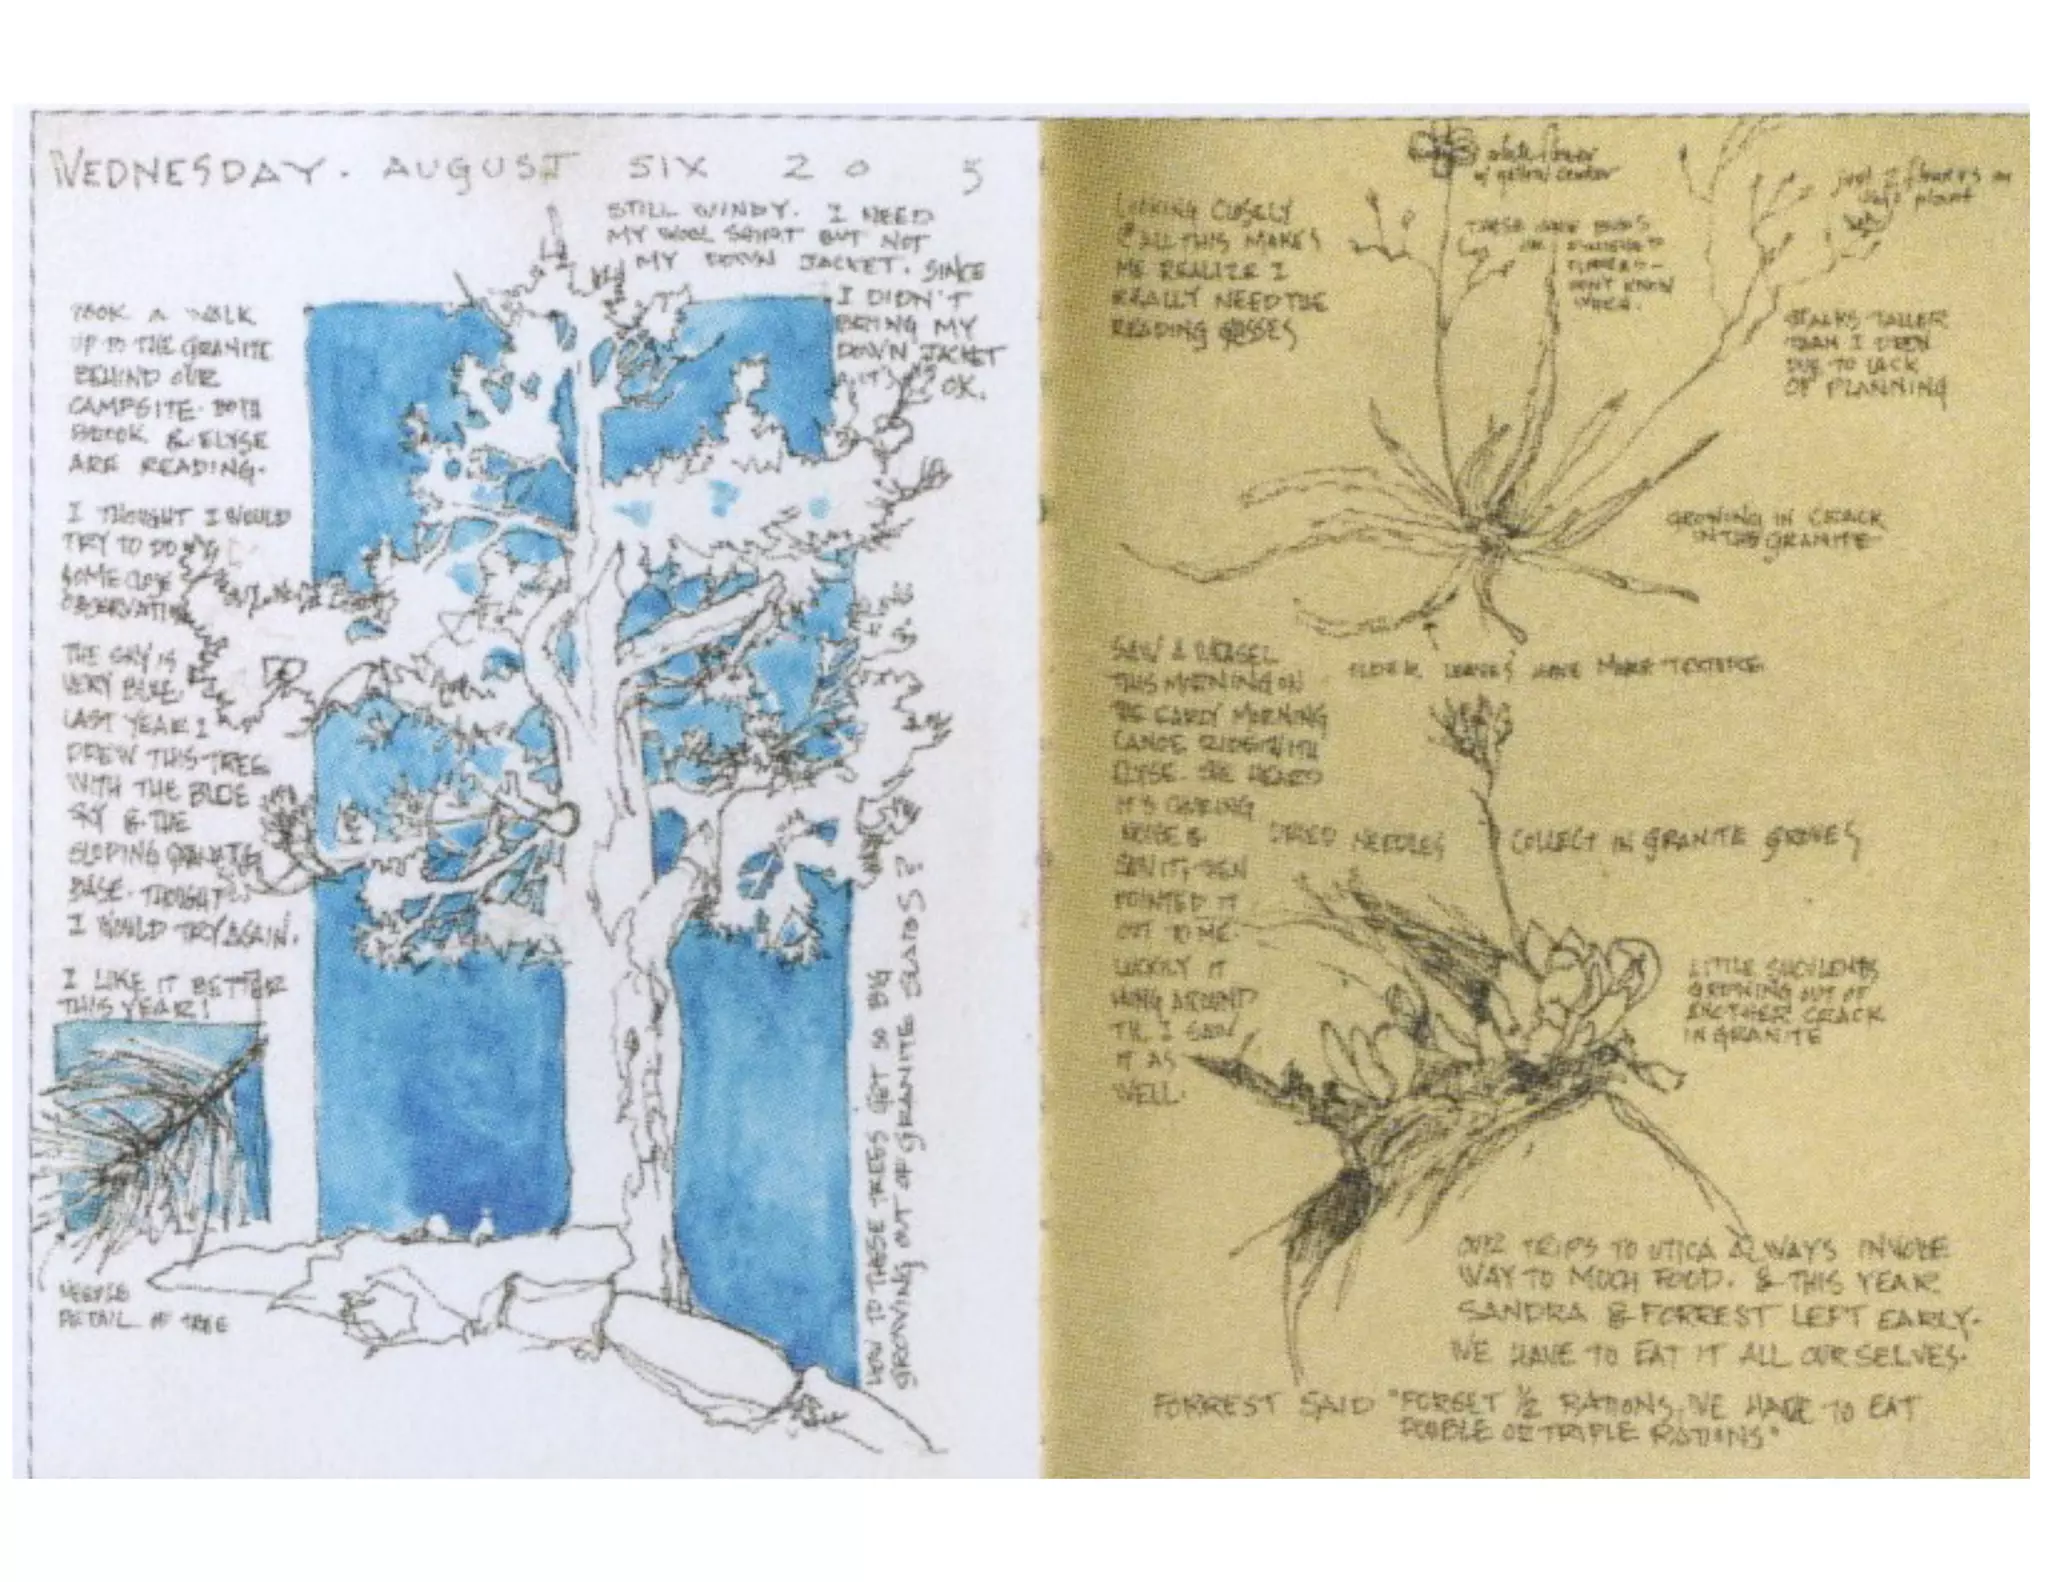 WEDNESDAY. AUGUST SIX 20 5
STILL WINDY. I NEED
MY WOOL SHIRT BUT NOT
MY DOWN JACKET. SINCE
I DIDN'T
BRING MY
DOWN JACKET
IT'S OK.
TOOK A WALK
UP TO THE GRANITE
BEHIND OUR
CAMPSITE. BOTH
BROOK & ELYSE
ARE READING.
I THOUGHT I WOULD
TRY TO DOING
SOME CLOSE
OBSERVATION
THE SKY IS
VERY BLUE.
LAST YEAR I
DREW THIS TREE
WITH THE BLUE
SKY & THE
SLOPING GRANITE
BASE. THOUGHT
I WOULD TRY AGAIN.
I LIKE IT BETTER
THIS YEAR!
NEEDLE
DETAIL OF TREE
HOW DO THESE TREES GET SO BIG
GROWING OUT OF GRANITE SLABS?
white flower
w/ yellow center
just 2 flowers on
this plant
LOOKING CLOSELY
@ ALL THIS MAKES
ME REALIZE I
REALLY NEED THE
READING GLASSES
THESE ARE BUDS
OR FINISHED
FLOWERS -
DON'T KNOW
WHICH.
STALKS TALLER
THAN I DREW
DUE TO LACK
OF PLANNING
GROWING IN CRACK
IN THE GRANITE
OLDER LEAVES HAVE MORE TEXTURE
SAW A WEASEL
THIS MORNING ON
THE EARLY MORNING
CANOE RIDE WITH
ELYSE. SHE HEARD
IT'S
NOISE &
SAW IT, THEN
POINTED IT
OUT TO ME.
LUCKILY IT
HUNG AROUND
TIL I SAW
IT AS
WELL.
DRIED NEEDLES COLLECT IN GRANITE GROVES
LITTLE SUCULENTS
GROWING OUT OF
ANOTHER CRACK
IN GRANITE
OUR TRIPS TO UTICA ALWAYS INVOLVE
WAY TO MUCH FOOD. & THIS YEAR
SANDRA & FORREST LEFT EARLY.
WE HAVE TO EAT IT ALL OURSELVES.
FORREST SAID "FORGET ½ RATIONS, WE HAVE TO EAT
DOUBLE OR TRIPLE RATIONS"